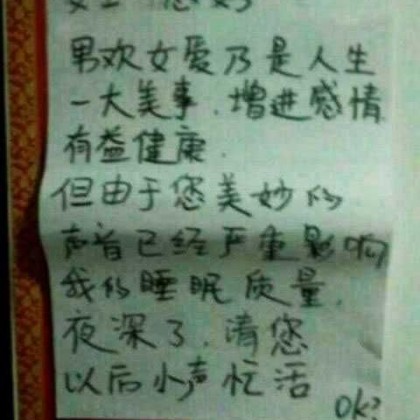 女士 您好
男欢女爱乃是人生
一大美事.增进感情
有益健康.
但由于您美妙的
声音已经严重影响
我的睡眠质量.
夜深了.请您
以后小声忙活
OK?